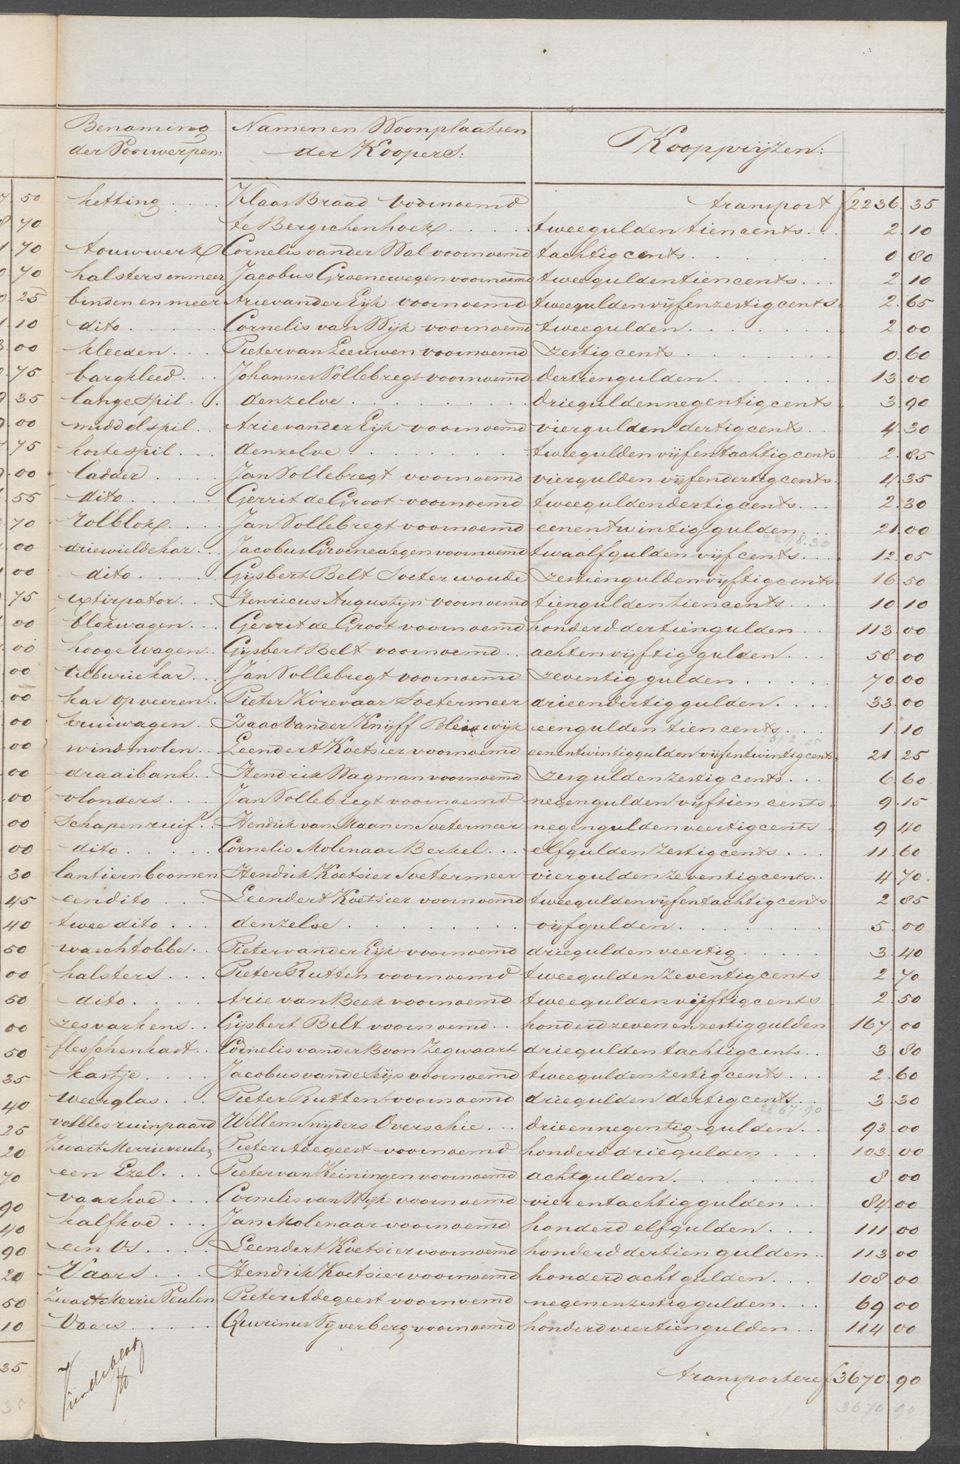 Benaming Namen en Woonplaatsen Koopprijzen:
der Voorwerpen: der Koopers:
7. 50 ketting Klaas Braad voornoemd transport f 2236. 35
8 70 te Bergschenhoek tweegulden tien cents 2. 10
1 70 touwwerk Cornelis vander Wal voornoemd tachtig cents 0 80
70 halsters en meer Jacobus Groenewegen voornoemd tweegulden tien cents 2 10
25 binden en meer Arie vander Eijk voornoemd tweegulden vijfenzestig cents 2. 65
1. 10 dito Cornelis van Wijk voornoemd tweegulden 2 00
3. 00 kleeden Pieter van Leeuwen voornoemd zestig cents 0. 60
75 bargkleed Johannes Sollebregt voornoemd dertiengulden 13 00
9 35 lange spil denzelve driegulden negentig cents 3. 90
9. 00 middelspil Arie vander Eijk voornoemd viergulden dertig cents 4. 30
75 korte spil denzelve tweegulden vijfentachtig cents 2. 85
00 ladder Jan Sollebregt voornoemd viergulden vijfendertig cents 4. 35
55 dito Gerrit de Groot voornoemd tweegulden dertig cents 2. 30
70 rolblok Jan Sollebregt voornoemd eenentwintig gulden 21. 00
00 driewielde kar Jacobus Groenewegen voornoemd twaalfgulden vijf cents 12. 05
00 dito Gijsbert Belt Soeterwoude zestiengulden vijftig cents 16 50
75 extirpator Henricus Augustijn voornoemd tiengulden tien cents 10 10
00 blokwagen Gerrit de Groot voornoemd honderd dertiengulden 113. 00
00 hooge wagen Gijsbert Belt voornoemd achtenvijftig gulden 58 00
00 tilburie kar Jan Sollebregt voornoemd zeventig gulden 70 00
00 kar op veeren Pieter Korevaar Soetermeer drieendertig gulden 33. 00
00 kruiwagen Izaac vander Knijff Bleiswijk eengulden tien cents 1. 10
00 windmolen Leendert Koetsier voornoemd eenentwintig gulden vijfentwintig cents 21. 25
00 draaibank Hendrik Wagman voornoemd zesgulden zestig cents 6 60
00 vlonders Jan Sollebregt voornoemd negengulden vijftien cents 9. 15
00 schapenruif Hendrik van Maanen Soetermeer negengulden veertig cents 9 40
00 dito Cornelis Molenaar Berkel elfgulden zestig cents 11. 60
30 lantiern boomen Hendrik Koetsier Soetermeer viergulden zeventig cents 4 70
45 een dito Leendert Koetsier voornoemd tweegulden vijfentachtig cents 2 85
40 twee dito denzelve vijfgulden 5 00
50 waschtobbe Pieter vander Eijk voornoemd driegulden veertig 3. 40
00 halsters Pieter Rutten voornoemd tweegulden zeventig cents 2. 70
50 dito Arie van Beek voornoemd tweegulden vijftig cents 2. 50
00 zes varkens Gijsbert Belt voornoemd honderd zevenenzestig gulden 167. 00
50 flesschenkast Cornelis vander Boon Zegwaart driegulden tachtig cents 3 80
35 kastje Jacobus vander Eijk voornoemd tweegulden zestig cents 2. 60
40 weerglas Pieter Rutten voornoemd driegulden dertig cents 3. 30
25 ruinpaard Willem Snijders Overschie drieennegentig gulden 93 00
20 Zwart Merrie veulen Pieter Adegeest voornoemd honderd driegulden 103. 00
70 een Ezel Pieter van Keiningen voornoemd achtgulden 8 00
90 vaarkoe Cornelis van Wijk voornoemd vierentachtig gulden 84 00
40 halfkoe Jan Molenaar voornoemd honderd elfgulden 111 00
90 een Os Leendert Koetsier voornoemd honderd dertien gulden 113 00
20 Vaars Hendrik Koetsier voornoemd honderd acht gulden 108 00
50 Zwarte Merrie Veulen Pieter Adegeest voornoemd negenenzestig gulden 69 00
10 Vaars Quirinus Sijverberg voornoemd honderd veertiengulden 114 00
35 transportere f 3670. 90
35 3670 90